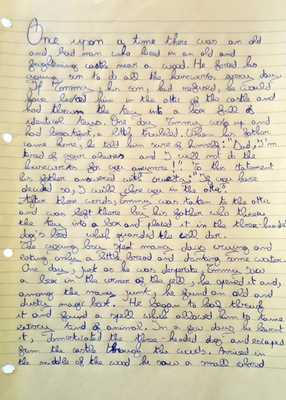 Once upon a time there was an old
and, bad man who lived in an old and
frightening castle near a wood. He forced his
young son to do all the houseworks every day.
If Tommy, his son, had refused, he would
have locked him in the attic of the castle and
had thrown the key into a box full of
identical keys. One day Tommy woke up and
had breakfast, a little troubled. When his father
came home, he told him sure of himself: "Dad, I'm
tired of your and I will not do the
houseworks for you anymore!" To this statement
his father answered "If you have
decided so, I will close you in the attic"
After these words, Tommy was taken to the attic
and was left there by his father who threw
the key into a box and placed it in the three-headed
dog's which guarded the
The young boy spent many days crying and
eating only a little bread and drinking some water.
One day, just as he was desperate, Tommy saw
a box in the corner of the , he opened it and,
among the many junk, he found an old and
dirty magic book. He began to look through
it and found a spell which allowed him to tame
every kind of animal. In a few days he learnt
it, domesticated the three-headed dog and escaped
from the castle through the woods. Arrived in
the middle of the wood he saw a small